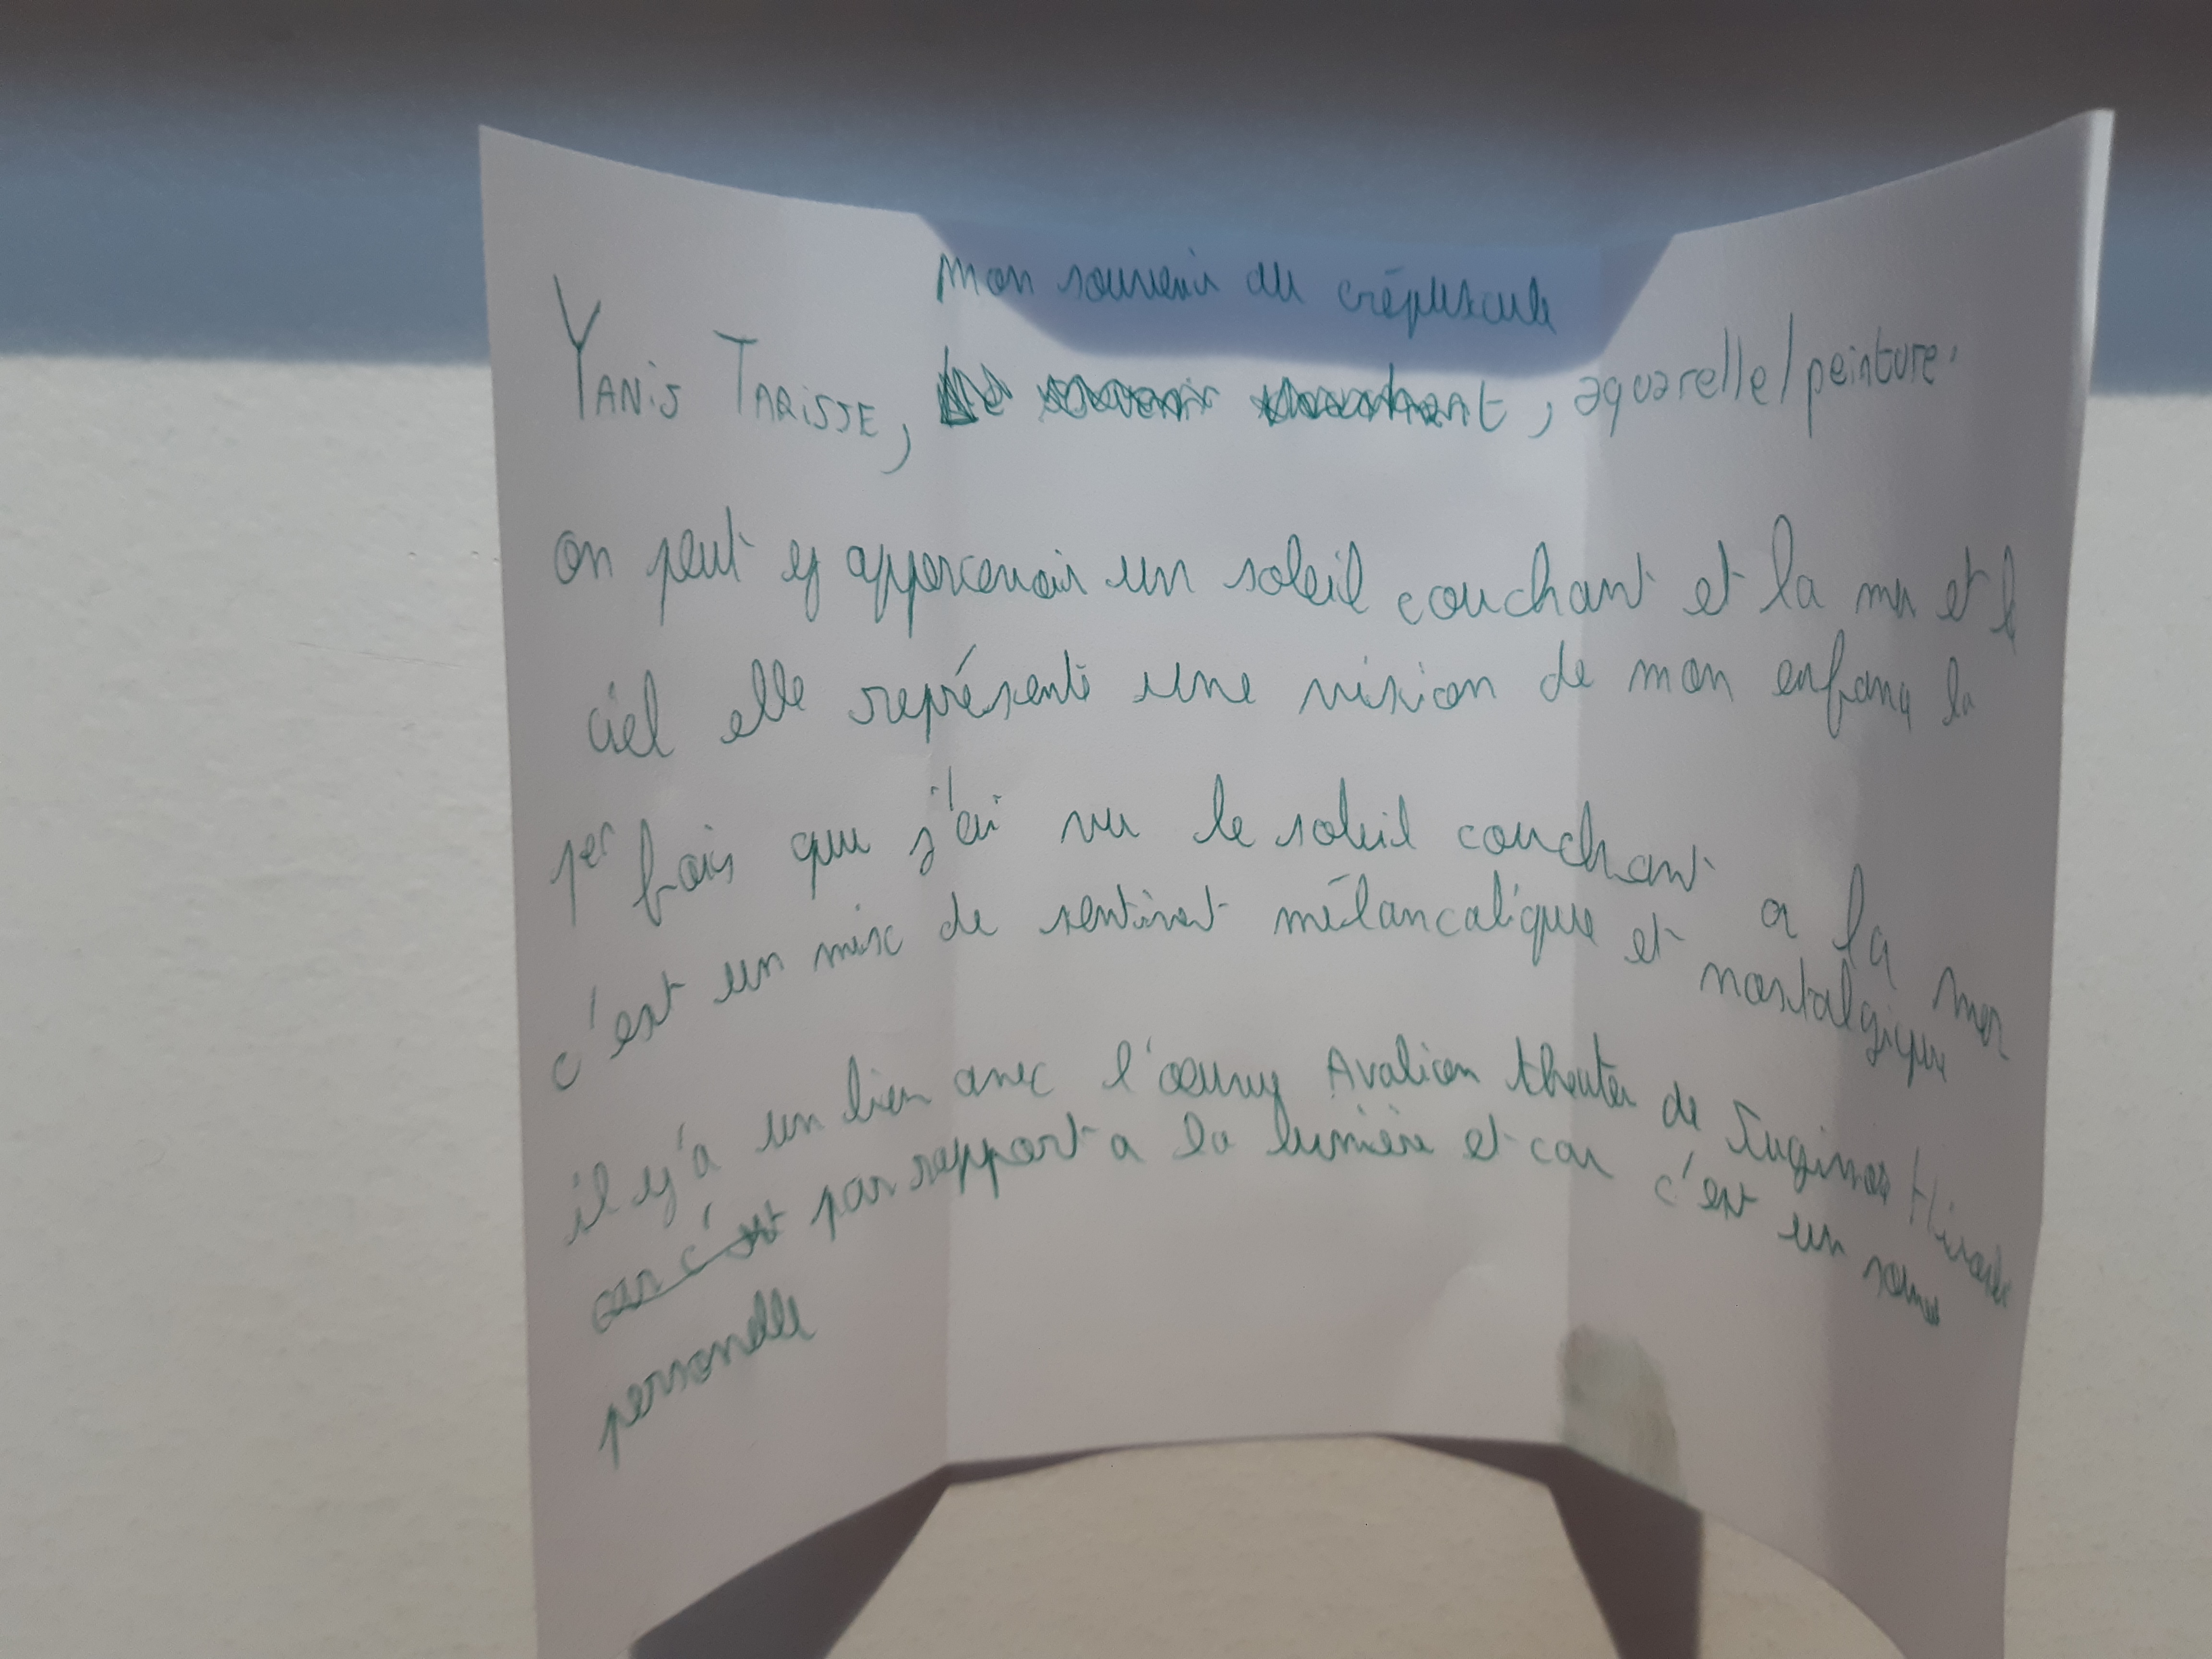 Mon souvenir du crépuscule
YANiS TARiSSE, , aquarelle/peinture.
on peut y appercevoir un soleil couchant et la mer et l
ciel elle représente une vision de mon enfanc la
1er fois que j'ai vu le soleil couchant a la mer
c'est un mix de sentiment mélancolique et nostalgique
il y'a un lien avec l'oeuvre Avalion theater de
car c'est par rapport a la lumière et car c'est un souve
personelle